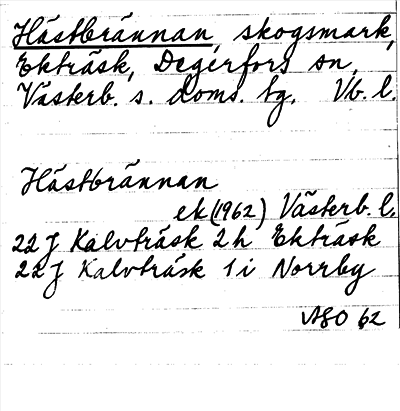 Hästbrännan, skogsmark,
Ekträsk, Degerfors sn,
Västerb. s. doms. tg. Vb. l.
Hästbrännan
ek (1962) Västerb. l.
22 J Kalvträsk 2h Ekträsk
22 J Kalvträsk 1i Norrby
ASO 62